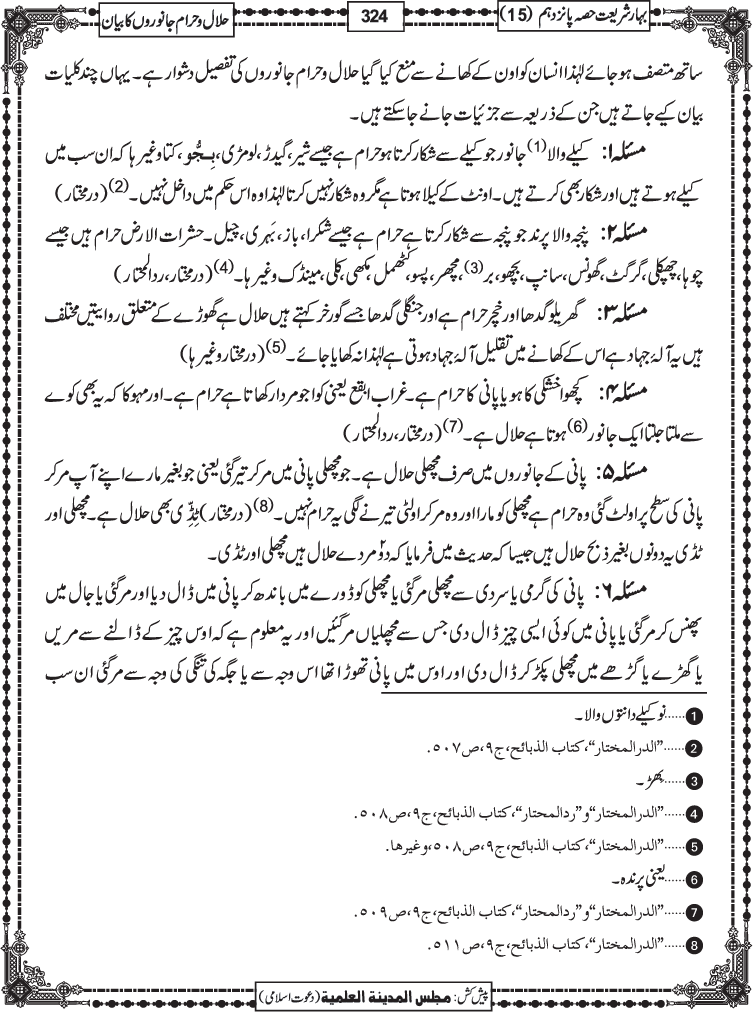 بہارشریعت حصہ پانزدہم (15)
324
حلال و حرام جانوروں کا بیان
ساتھ متصف ہو جائے لہٰذا انسان کو اون کے کھانے سے منع کیا گیا حلال و حرام جانوروں کی تفصیل دشوار ہے۔ یہاں چند کلیات
بیان کیے جاتے ہیں جن کے ذریعہ سے جزئیات جانے جاسکتے ہیں۔
مسئلہ ۱: کیلے والا(1) جانور جو کیلے سے شکار کرتا ہو حرام ہے جیسے شیر، گیدڑ، لومڑی، بِجُّو، کتا وغیرہا کہ ان سب میں
کیلے ہوتے ہیں اور شکار بھی کرتے ہیں۔ اونٹ کے کیلا ہوتا ہے مگر وہ شکار نہیں کرتا لہٰذا وہ اس حکم میں داخل نہیں۔(2) (درمختار)
مسئلہ ۲: پنجہ والا پرند جو پنجہ سے شکار کرتا ہے حرام ہے جیسے شکرا، باز، بَہری، چیل۔ حشرات الارض حرام ہیں جیسے
چوہا، چھپکلی، گرگٹ، گھونس، سانپ، بچھو، بر(3)، مچھر، پسو، کٹھمل، مکھی، کلی، مینڈک وغیرہا۔(4) (درمختار، ردالمحتار)
مسئلہ ۳: گھریلو گدھا اور خچر حرام ہے اور جنگلی گدھا جسے گورخر کہتے ہیں حلال ہے گھوڑے کے متعلق روایتیں مختلف
ہیں یہ آلۂ جہاد ہے اس کے کھانے میں تقلیل آلۂ جہاد ہوتی ہے لہٰذا نہ کھایا جائے۔(5) (درمختار وغیرہا)
مسئلہ ۴: کچھوا خشکی کا ہو یا پانی کا حرام ہے۔ غراب ابقع یعنی کوا جو مردار کھاتا ہے حرام ہے۔ اور مہوکا کہ یہ بھی کوے
سے ملتا جلتا ایک جانور(6) ہوتا ہے حلال ہے۔(7) (درمختار، ردالمحتار)
مسئلہ ۵: پانی کے جانوروں میں صرف مچھلی حلال ہے۔ جو مچھلی پانی میں مرکر تیر گئی یعنی جو بغیر مارے اپنے آپ مرکر
پانی کی سطح پر اولٹ گئی وہ حرام ہے مچھلی کو مارا اور وہ مرکر اولٹی تیرنے لگی یہ حرام نہیں۔(8) (درمختار) ٹڈِّی بھی حلال ہے۔ مچھلی اور
ٹڈی یہ دونوں بغیر ذبح حلال ہیں جیسا کہ حدیث میں فرمایا کہ دو۲ مردے حلال ہیں مچھلی اور ٹڈی۔
مسئلہ ۶: پانی کی گرمی یا سردی سے مچھلی مرگئی یا مچھلی کو ڈورے میں باندھ کر پانی میں ڈال دیا اور مرگئی یا جال میں
پھنس کر مرگئی یا پانی میں کوئی ایسی چیز ڈال دی جس سے مچھلیاں مرگئیں اور یہ معلوم ہے کہ اوس چیز کے ڈالنے سے مریں
یا گھڑے یا گڑھے میں مچھلی پکڑ کر ڈال دی اور اوس میں پانی تھوڑا تھا اس وجہ سے یا جگہ کی تنگی کی وجہ سے مرگئی ان سب
1......نوکیلے دانتوں والا۔
2......”الدرالمختار“، کتاب الذبائح، ج۹، ص۵۰۷.
3......بِھڑ۔
4......”الدرالمختار“ و ”ردالمحتار“، کتاب الذبائح، ج۹، ص۵۰۸.
5......”الدرالمختار“، کتاب الذبائح، ج۹، ص۵۰۸، وغیرها.
6......یعنی پرندہ۔
7......”الدرالمختار“ و ”ردالمحتار“، کتاب الذبائح، ج۹، ص۵۰۹.
8......”الدرالمختار“، کتاب الذبائح، ج۹، ص۵۱۱.
پیش کش: مجلس المدينة العلمية (دعوت اسلامی)